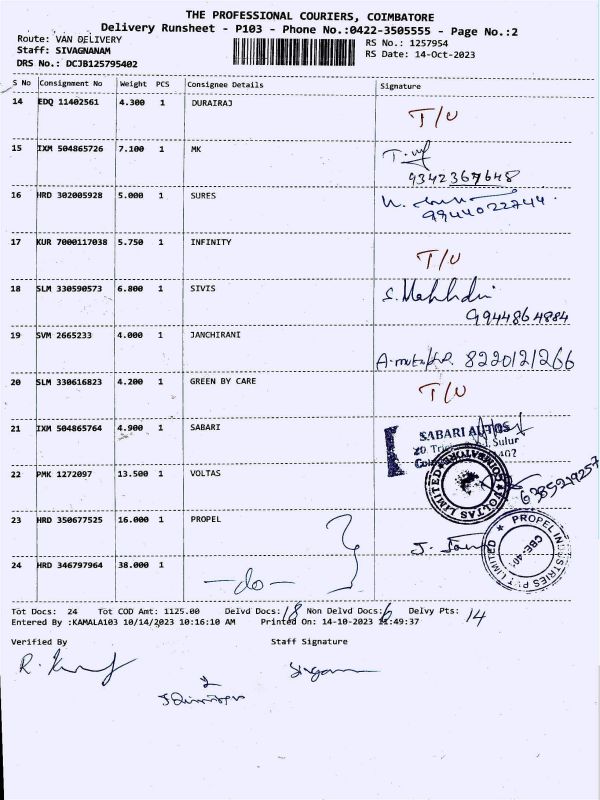 THE PROFESSIONAL COURIERS, COIMBATORE
Delivery Runsheet - P103 - Phone No.:0422-3505555 - Page No.:2
Route: VAN DELIVERY
Staff: SIVAGNANAM
DRS No.: DCJB125795402
RS No.: 1257954
RS Date: 14-Oct-2023
S No Consignment No Weight PCS Consignee Details Signature
14 EDQ 11402561 4.300 1 DURAIRAJ T/U
15 IXM 504865726 7.100 1 MK
9342367648
16 HRD 302005928 5.000 1 SURES
9944022744.
17 KUR 7000117038 5.750 1 INFINITY T/U
18 SLM 330590573 6.800 1 SIVIS
9944864884
19 SVM 2665233 4.000 1 JANCHIRANI 8220121266
20 SLM 330616823 4.200 1 GREEN BY CARE T/U
21 IXM 504865764 4.900 1 SABARI
SABARI AUTOS
Sulur
22 PMK 1272097 13.500 1 VOLTAS
VOLTAS LIMITED COIMBATORE
23 HRD 350677525 16.000 1 PROPEL
PROPEL INDUSTRIES PVT LIMITED
24 HRD 346797964 38.000 1 -do-
Tot Docs: 24 Tot COD Amt: 1125.00 Delvd Docs: 18 Non Delvd Docs: 6 Delvy Pts: 14
Entered By :KAMALA103 10/14/2023 10:16:10 AM Printed On: 14-10-2023 11:49:37
Verified By Staff Signature